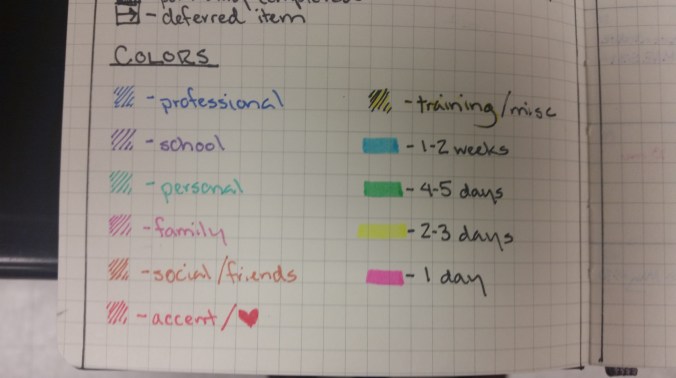 - deferred item
COLORS
- professional
- school
- personal
- family
- social/friends
- accent/♥
- training/misc
- 1-2 weeks
- 4-5 days
- 2-3 days
- 1 day